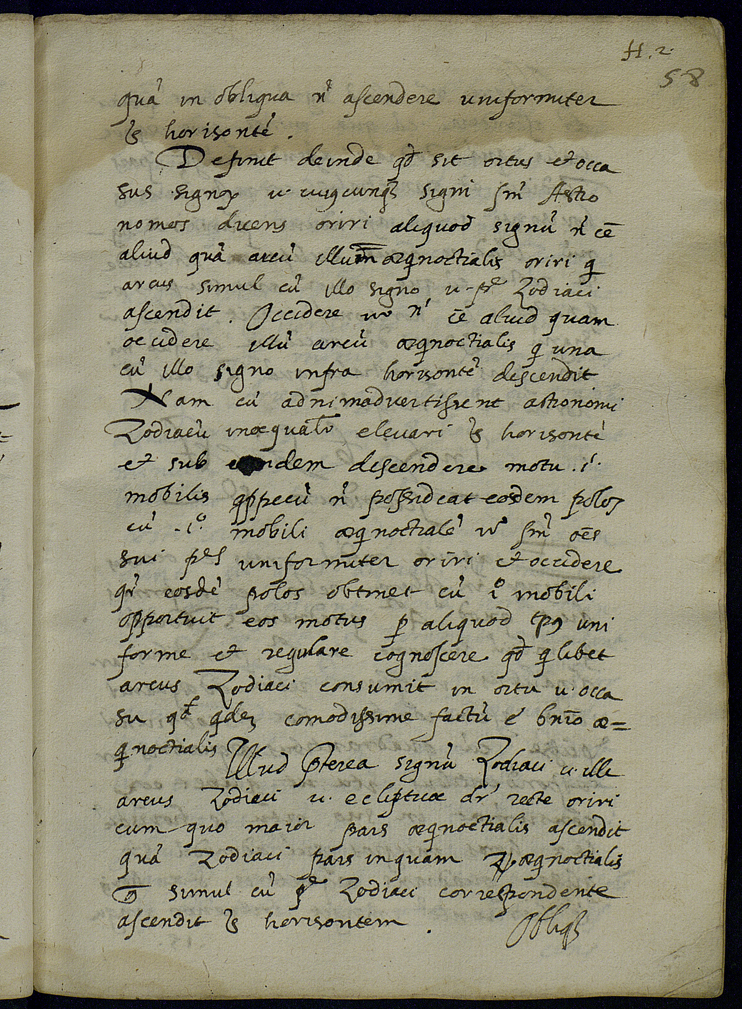 H. 2.
58
quā in obliqua n̄ ascendere uniformiter
horisontē.
Definit deinde qđ sit ortus et occa
sus signoꝝ u. cuiuscunqꝫ signi sm̄ Astro
nomos dicens oriri aliquod signū n̄ cē
aliud quā arcū illum æqnoctialis oriri q
arcus simul cū illo signo u. Zodiaci
ascendit. Occidere vo n̄ cē aliud quam
occidere illū arcū æqnoctialis q una
cū illo signo infra horisontē descendit
Nam cū adnimadvertissent astronomi
Zodiacū inæqualr elevari horisontē
et sub eundem descendere motu .i.
mobilis n̄ possideat eosdem polos
cū .i.o mobili æqnoctialē vo sm̄ oēs
sui uniformiter oriri et occidere
qr eosdē polos obtinet cū io mobili
opportuit eos motus p aliquod tp9 uni
forme et regulare cognoscere qđ qlibet
arcus Zodiaci consumit in ortu u. occa
su qđ qdeꝫ comodissime factū ē æ=
qnoctialis Illud pterea signū Zodiaci u. ille
arcus Zodiaci u. eclipticæ dr recte oriri
cum quo maior pars æqnoctialis ascendit
quā Zodiaci pars inquam æqnoctialis
simul cū Zodiaci correspondente
ascendit horisontem.
Obliqꝫ